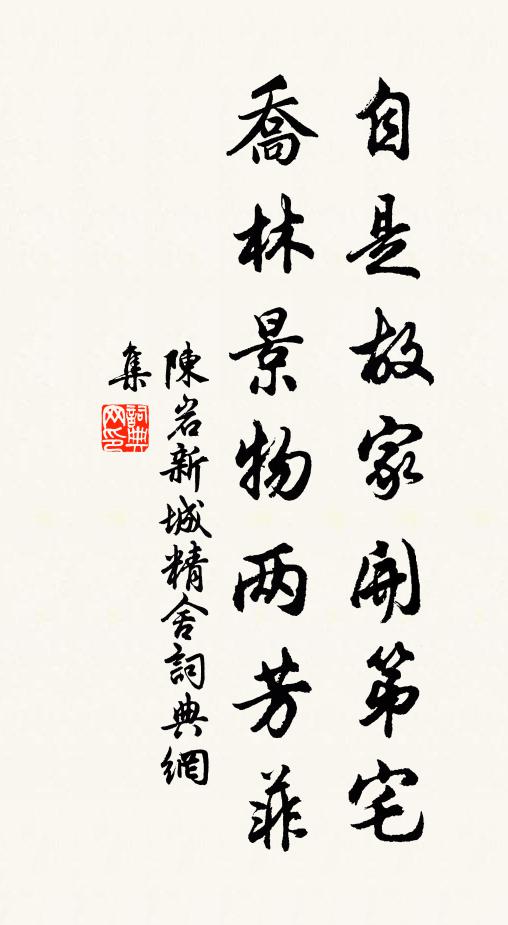 自是故家開第宅
喬林景物两芳菲
陳岩新城精舍詞典網
集
詞典網印